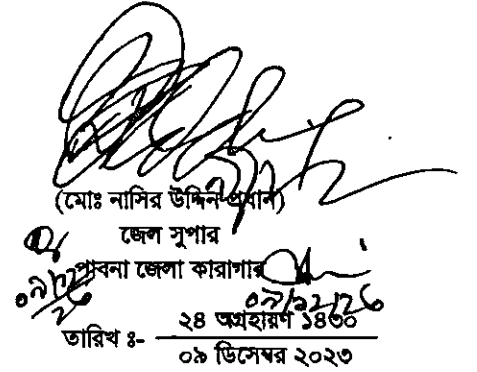 (মোঃ নাসির উদ্দিন প্রধান)
জেল সুপার
পাবনা জেলা কারাগার
তারিখ ঃ- ২৪ অগ্রহায়ণ ১৪৩০
০৯ ডিসেম্বর ২০২৩